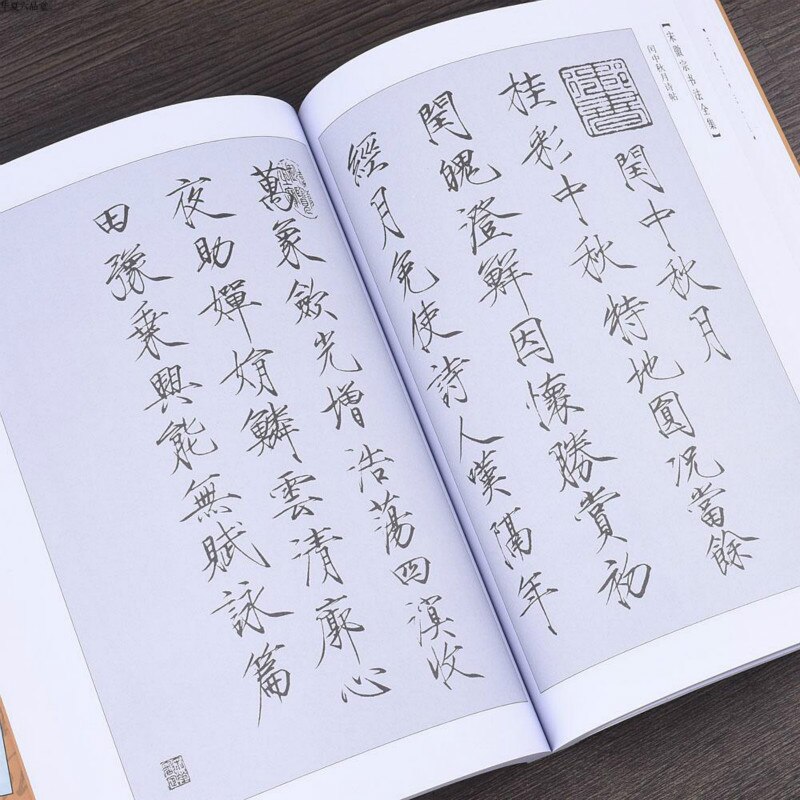 华夏六品堂
【宋徽宗书法全集】
闰中秋月诗帖
閏中秋月
桂彩中秋特地圓況當餘
閏魄澄鮮因懷勝賞初
經月免使詩人嘆隔年
萬象歛光增浩蕩四溟收
夜助嬋娟鱗雲清廓心
田豫乘興能無賦詠篇